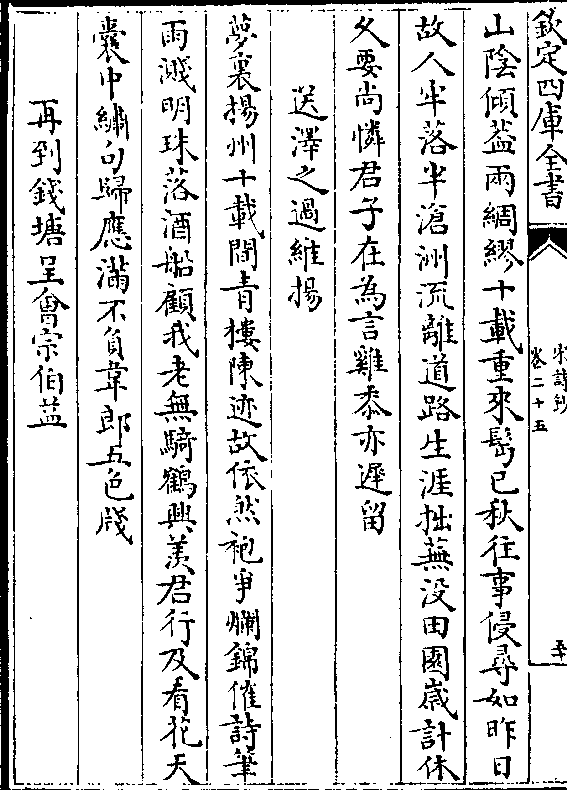 欽定四庫全書
宋詩鈔
卷二十五
五十
山陰傾葢雨綢繆十載重來髩已秋往事侵尋如昨日
故人半落半滄洲流離道路生涯拙蕪没田園歲計休
父要尚憐君子在為言雞黍亦遲留
送澤之過維揚
夢裏揚州十載間青樓陳迹故依然袍爭爛錦催詩筆
雨濺明珠落酒船顧我老無騎鶴興羨君行及看花天
囊中繡句歸應滿不負韋郎五色牋
再到錢塘呈會宗伯益